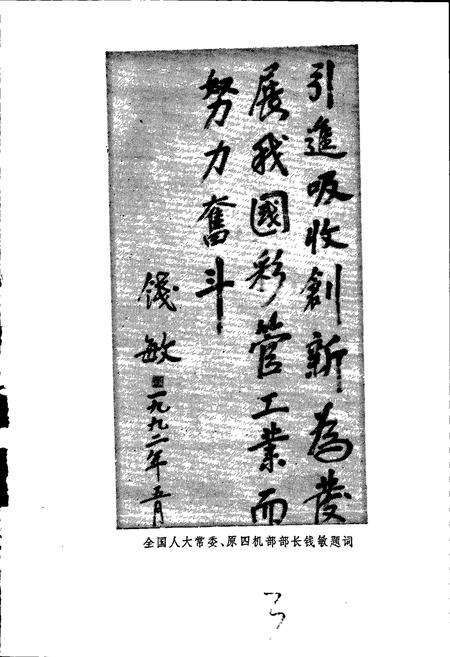 引進吸收創新為發
展我國彩管工業而
努力奮斗
錢敏
一九九二年五月
全国人大常委、原四机部部长钱敏题词